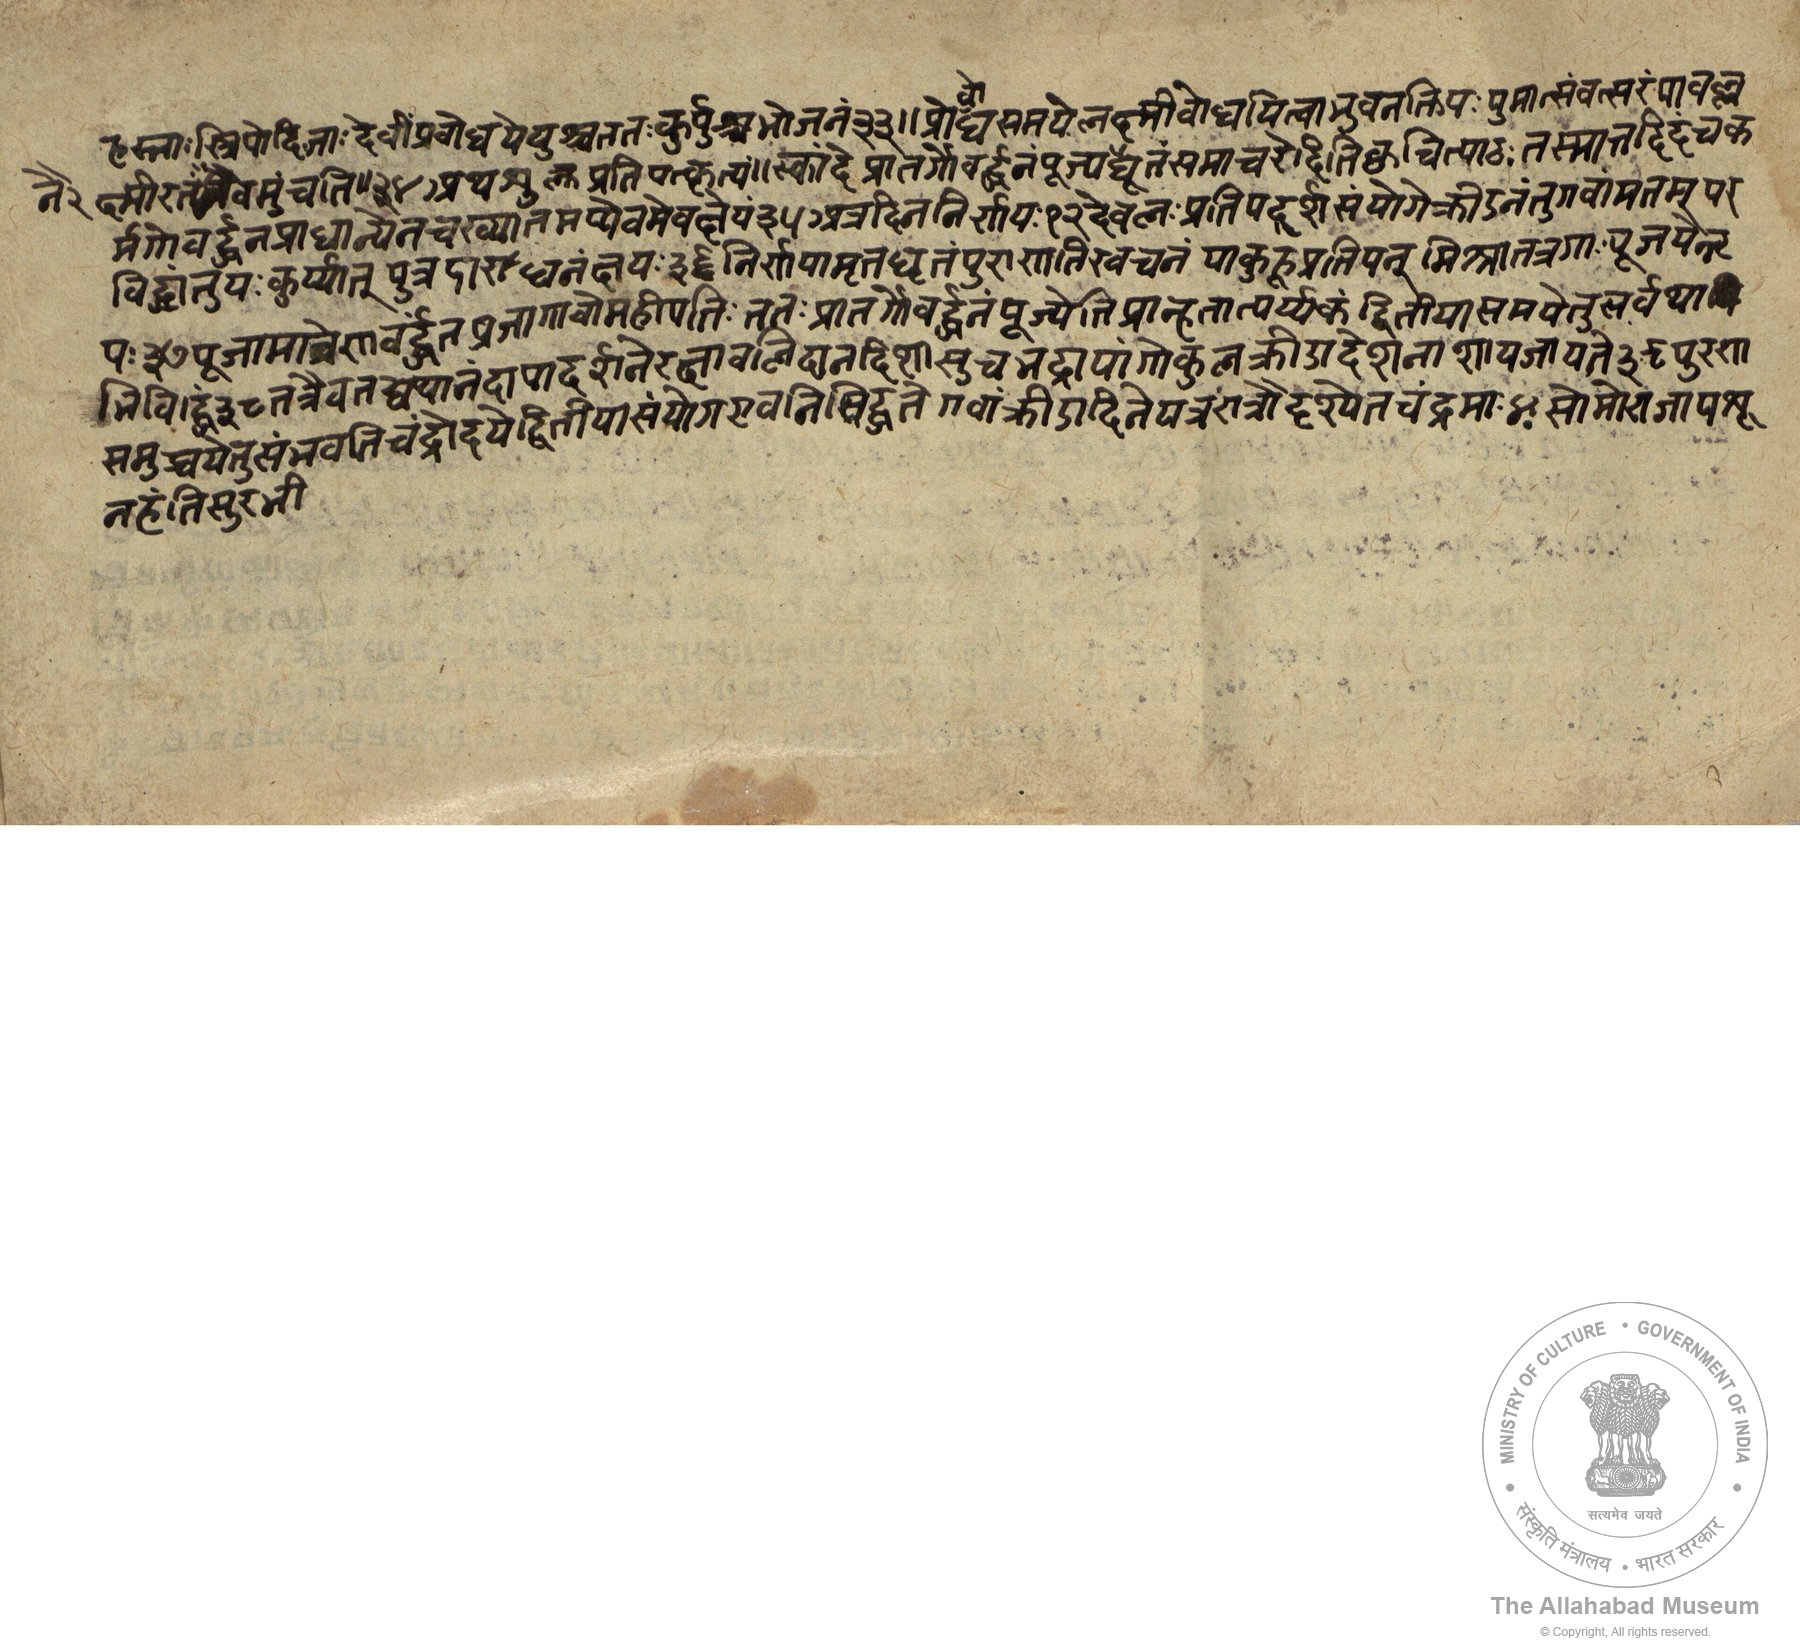 हस्ताः स्त्रियो द्विजाः देवीं प्रबोधयेयुश्च ततः कुर्युश्च भोजनं ३३॥ प्रबोधसमये लक्ष्मीं बोधयित्वा भुवनक्ति यः पुमात्संवत्सरं यावल्ल
क्ष्मीस्तं नैव मुंचति॥ ३४ अथ शुक्लप्रतिपत्कृत्यं॥ स्कांदे प्रातर्गोवर्द्धनं पूज्य द्यूतं समाचरेदिति क्वचित्पाठः तस्मात्तद्दिदं च क
नै २
र्म गोवर्द्धनप्राधान्येन च ख्यातमप्येवमेव ज्ञेयं ३५ अत्र दिननिर्णयः १२ देवलः प्रतिपद्दर्शसंयोगे क्रीडनं तु गवां मतम् पर
विद्धां तु यः कुर्य्यात् पुत्रदाराधनं क्षयः ३६ निर्णयामृतधृतं पुराणांतिरवचनं या कुहू प्रतिपन् मिश्रा तत्र गाः पूजयेन्नृ
पः ३७ पूजामात्रेण वर्द्धंत प्रजा गावो महीपतिः ततः प्रातर्गोवर्द्धनं पूज्येति प्रान्हतात्पर्य्यकं द्वितीयासमये तु सर्वथा
मिविद्धं ३८ तत्रैव तस्य
समुच्चये तु संभवति चंद्रोदये द्वितीयासंयोग एव निषिद्धते गवां क्रीडादिने यत्र रात्रौ दृश्येत चंद्रमाः ४० सोमो राजा पशू
न हंति सुरभी
MINISTRY OF CULTURE • GOVERNMENT OF INDIA
सत्यमेव जयते
संस्कृति मंत्रालय • भारत सरकार
The Allahabad Museum
© Copyright, All rights reserved.